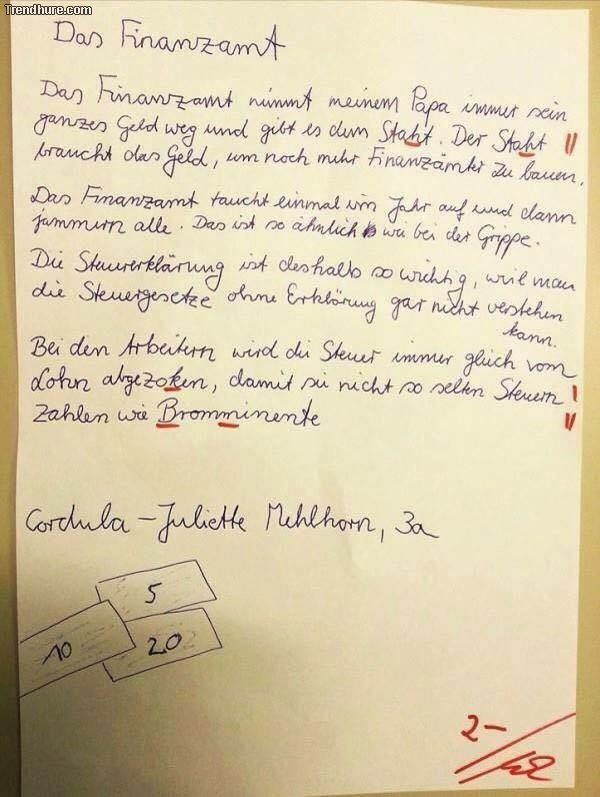 Trendhure.com
Das Finanzamt
Das Finanzamt nimmt meinem Papa immer sein
ganzes Geld weg und gibt es dem Staht. Der Staht
braucht das Geld, um noch mehr Finanzämter zu bauen.
Das Finanzamt taucht einmal im Jahr auf und dann
jammern alle. Das ist so ähnlich wie bei der Grippe.
Die Steuererklärung ist deshalb so wichtig, weil man
die Steuergesetze ohne Erklärung gar nicht verstehen
kann.
Bei den Arbeitern wird die Steuer immer gleich vom
Lohn abgezoken, damit sie nicht so selten Steuern
zahlen wie Bromminente
Cordula-Juliette Mehlhorn, 3a
5
10
20
2-